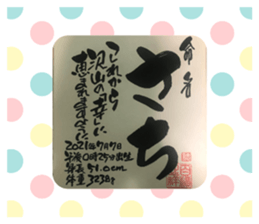 命名
さち
これから
沢山の幸に
恵まれますように
2021年7月7日
午後0時25分出生
身長 51.0cm
体重 3238g